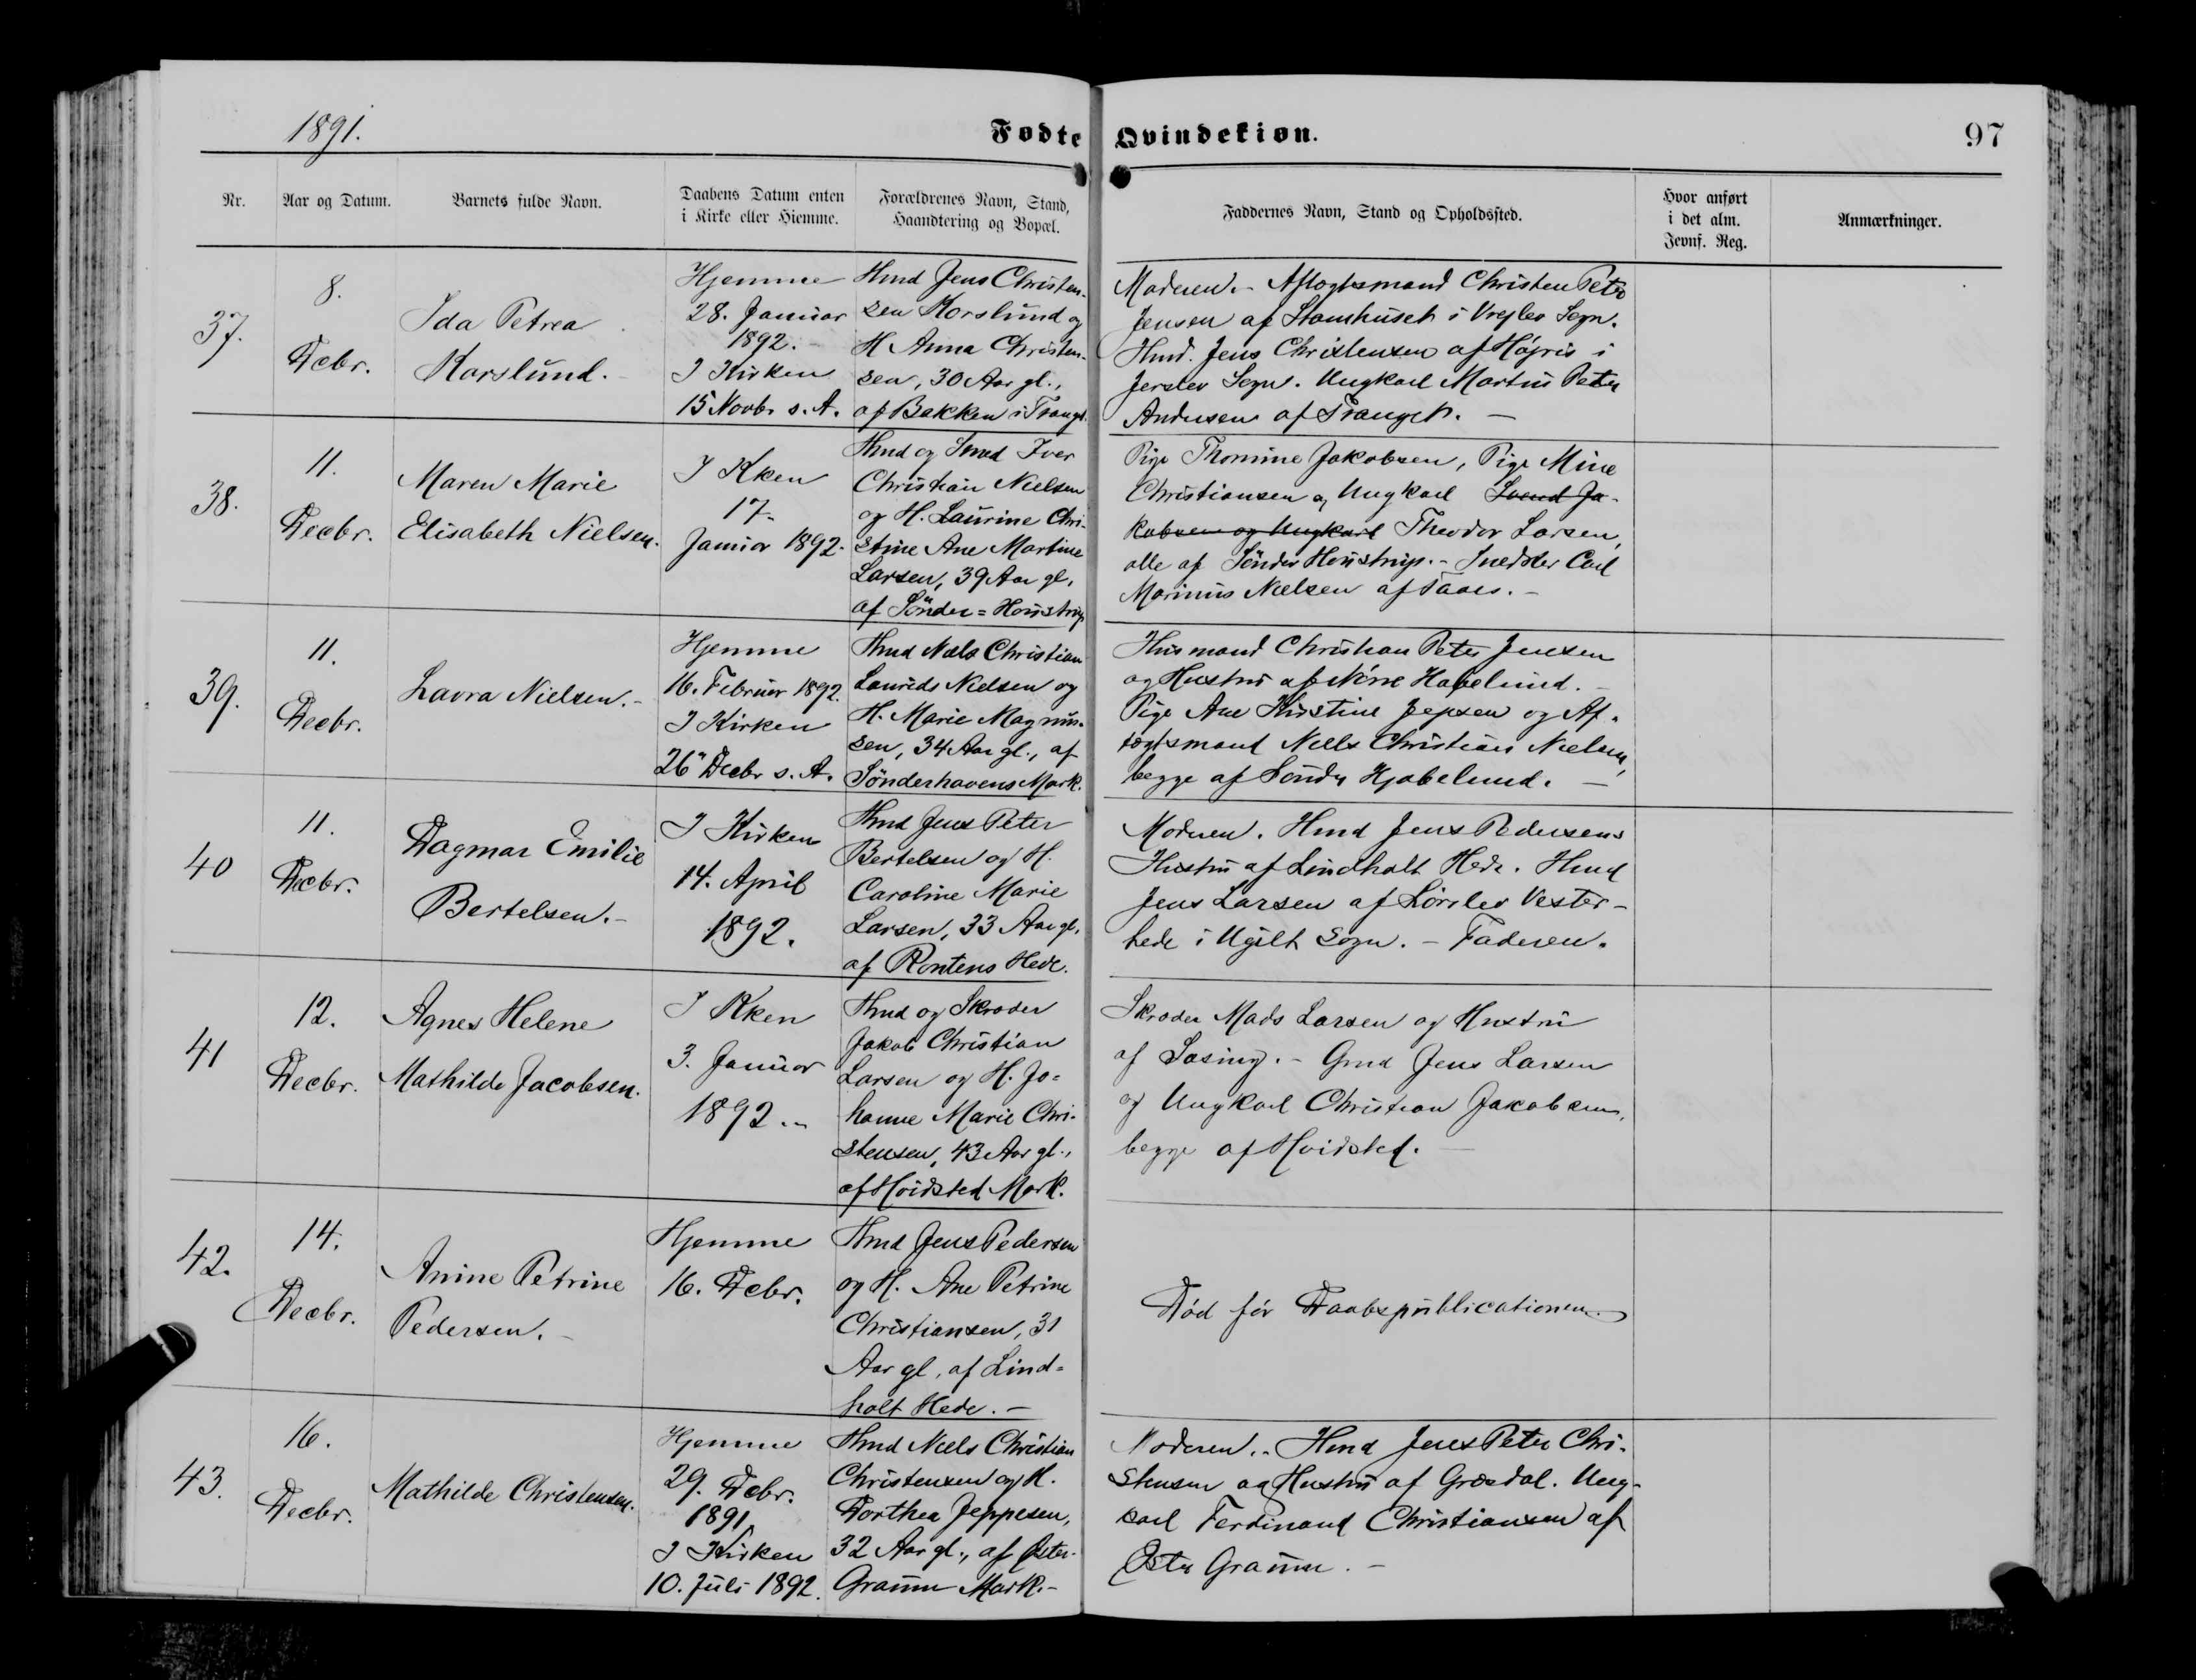 1891.
Fødte Qvindekiøn.
97
Nr.
Aar og Datum.
Barnets fulde Navn.
Daabens Datum enten
i Kirke eller Hiemme.
Forældrenes Navn, Stand,
Haandtering og Bopæl.
Faddernes Navn, Stand og Opholdssted.
Hvor anført
i det alm.
Jevnf. Reg.
Anmærkninger.
37.
8.
Dcbr.
Ida Petrea
Korslund.
Hjemme
28. Januar
1892.
I Kirken
15 Novbr s. A.
Hmd Jens Christen-
sen Korslund og
H Anna Christen-
sen, 30 Aar gl.,
af Bakken i Trangt.
Moderen. - Aftægtsmand Christen Peter
Jensen af Stamhuset i Vrejlev Sogn.
Hmd. Jens Christensen af Højris i
Jerslev Sogn. Ungkarl Martin Peter
Andersen af Tranget. -
38.
11.
Decbr.
Maren Marie
Elisabeth Nielsen.
I Kken
17.
Januar 1892.
Hmd og Smed Iver
Christian Nielsen
og H. Laurine Chri-
stine Ane Martine
Larsen, 39 Aar gl,
af Sønder=Houstrup
Pige Thomine Jakobsen, Pige Mine
Christiansen og Ungkarl Svend Ja-
kobsen og Ungkarl Theodor Larsen,
alle af Sønder Houstrup. - Snedker Carl
Marinus Nielsen af Taars. -
39.
11.
Decbr.
Laura Nielsen. -
Hjemme
16. Februar 1892.
I Kirken
26 Decbr s. A.
Hmd Niels Christian
Laurids Nielsen og
H. Marie Magnus-
sen, 34 Aar gl., af
Sønderhavens Mark.
Husmand Christian Peter Jensen
og Hustru af Nørre Habelund. -
Pige Ane Kirstine Jepsen og Af-
tægtsmand Niels Christian Nielsen,
begge af Sønder Hjabelund. -
40
11.
Decbr.
Dagmar Emilie
Bertelsen. -
I Kirken
14. April
1892.
Hmd Jens Peter
Bertelsen og H.
Caroline Marie
Larsen, 33 Aar gl.
af Rontens Hede.
Moderen. Hmd Jens Pedersens
Hustru af Lindholt Hede. Hmd
Jens Larsen af Lørslev Vester-
hede i Ugilt Sogn. - Faderen.
41
12.
Decbr.
Agnes Helene
Mathilde Jacobsen.
I Kken
3. Januar
1892. -
Hmd og Skræder
Jakob Christian
Larsen og H. Jo=
hanne Marie Chri-
stensen, 43 Aar gl.,
af Hvidsted Mark.
Skræder Mads Larsen og Hustru
af Sæsing. - Gmd Jens Larsen
og Ungkarl Christian Jakobsen,
begge af Hvidsted. -
42.
14.
Decbr.
Anine Petrine
Pedersen. -
Hjemme
16. Dcbr.
Hmd Jens Pedersen
og H. Ane Petrine
Christiansen, 31
Aar gl, af Lind=
holt Hede. -
Død før Daabspublicationen.
43.
16.
Decbr.
Mathilde Christensen.
Hjemme
29. Dcbr.
1891,
I Kirken
10. Juli 1892.
Hmd Niels Christian
Christensen og H.
Dorthea Jeppesen,
32 Aar gl., af Øster-
Graum Mark. -
Moderen. - Hmd Jens Peter Chri-
stensen og Hustru af Græsdal. Ung-
karl Ferdinand Christiansen af
Øster Graum. -